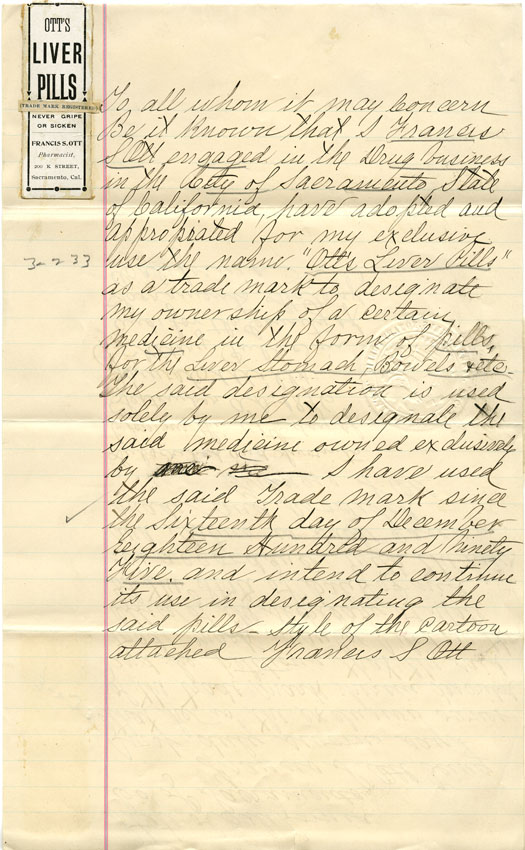 OTT'S
LIVER
PILLS
(TRADE MARK REGISTERED)
NEVER GRIPE
OR SICKEN
FRANCIS S. OTT
Pharmacist,
200 K STREET,
Sacramento, Cal.
To all whom it may Concern
Be it known that I Francis
S Ott engaged in the Drug business
in the City of Sacramento, State
of California, have adopted and
appropriated for my exclusive
use the name. "Ott's Liver Pills"
3-2 33
as a trade mark to designate
my ownership of a certain
medicine in the form of pills,
for the Liver Stomach, Bowels & etc-
The said designation is used
solely by me to designate the
said medicine owned exclusively
by I have used
the said Trade mark since
the Sixteenth day of December
Eighteen Hundred and Ninety
Five. and intend to continue
its use in designating the
said pills - Style of the cartoon
attached Francis S Ott